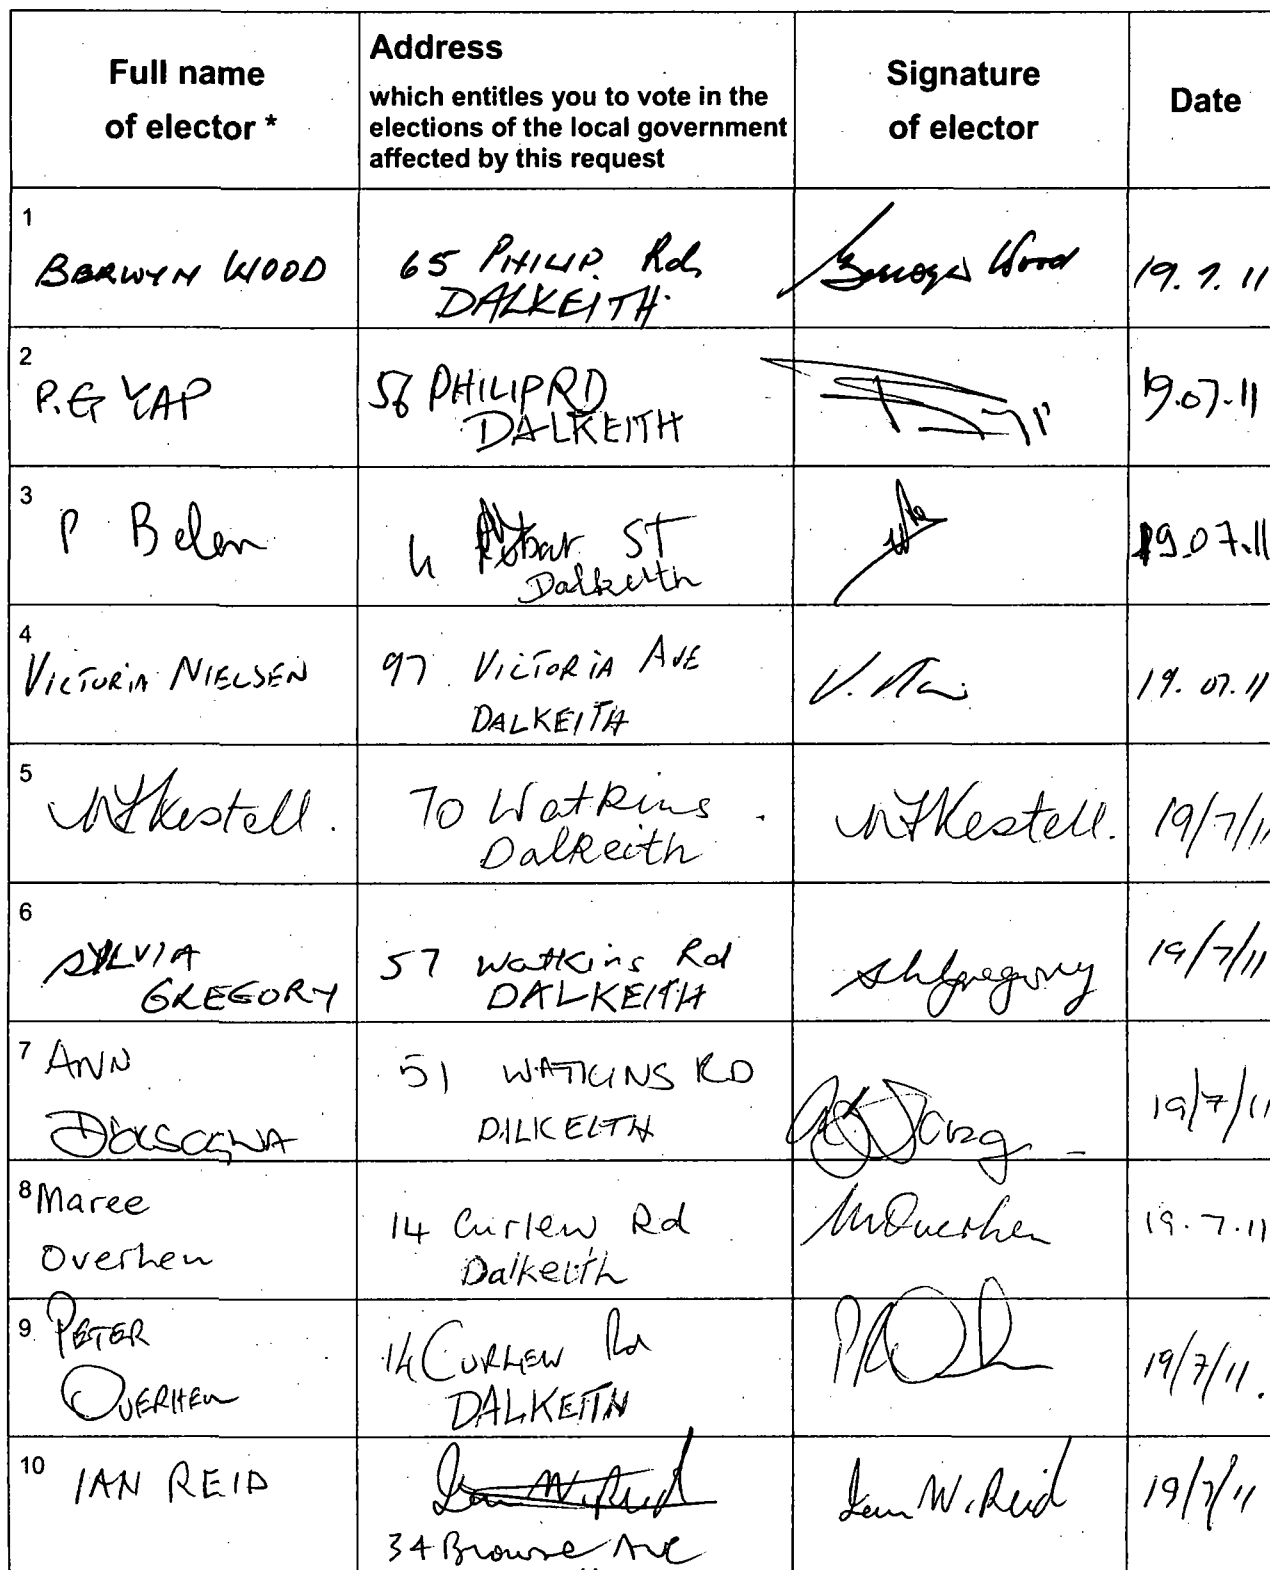 Full name
of elector *
Address
which entitles you to vote in the
elections of the local government
affected by this request
Signature
of elector
Date
1
BERWYN WOOD
65 PHILIP Rd,
DALKEITH.
Wood
19.7.11
2
P.G YAP
56 PHILIP RD
DALKEITH
19.07.11
3
P Belen
ST
Dalkeith
19.07.11
4
VICTORIA NIELSEN
97 VICTORIA AVE
DALKEITH
V.
19.07.11
5
Kestell.
70 Watkins
Dalkeith
Kestell.
19/7/11
6
SYLVIA
GREGORY
57 Watkins Rd
DALKEITH
Gregory
19/7/11
7
ANN
51 WATKINS RD
DALKEITH
19/7/11
8
Maree
Overheu
14 Curlew Rd
Dalkeith
MOverheu
19.7.11
9
PETER
OVERHEU
14 CURLEW Rd
DALKEITH
19/7/11.
10
IAN REID
Ian W. Reid
34 Browse Ave
Ian W. Reid
19/7/11